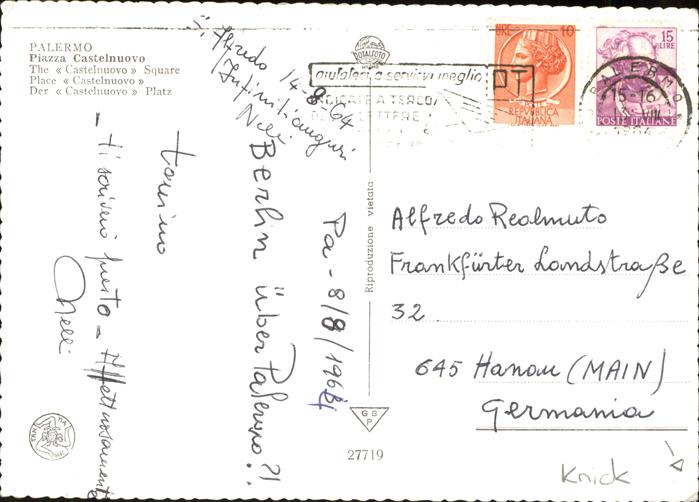 PALERMO
Piazza Castelnuovo
The « Castelnuovo » Square
Place « Castelnuovo »
Der « Castelnuovo » Platz
S. Alfredo 14-8-64
Infiniti auguri
Nelli
Berlin über Palermo?!
Pa - 8/8/1964
torino
- ti scriverò presto - Affettuosamente
Nelli
Riproduzione vietata
GBP
27719
DOTALFOTO
aiutateci a servirvi meglio
INDICATE A TERGO
DELLE LETTERE
PT
LIRE 10
REPUBBLICA
ITALIANA
15
LIRE
POSTE ITALIANE
PALERMO
15-16
1964
Alfredo Realmuto
Frankfürter Landstraße
32
645 Hanau (MAIN)
Germania
Knick